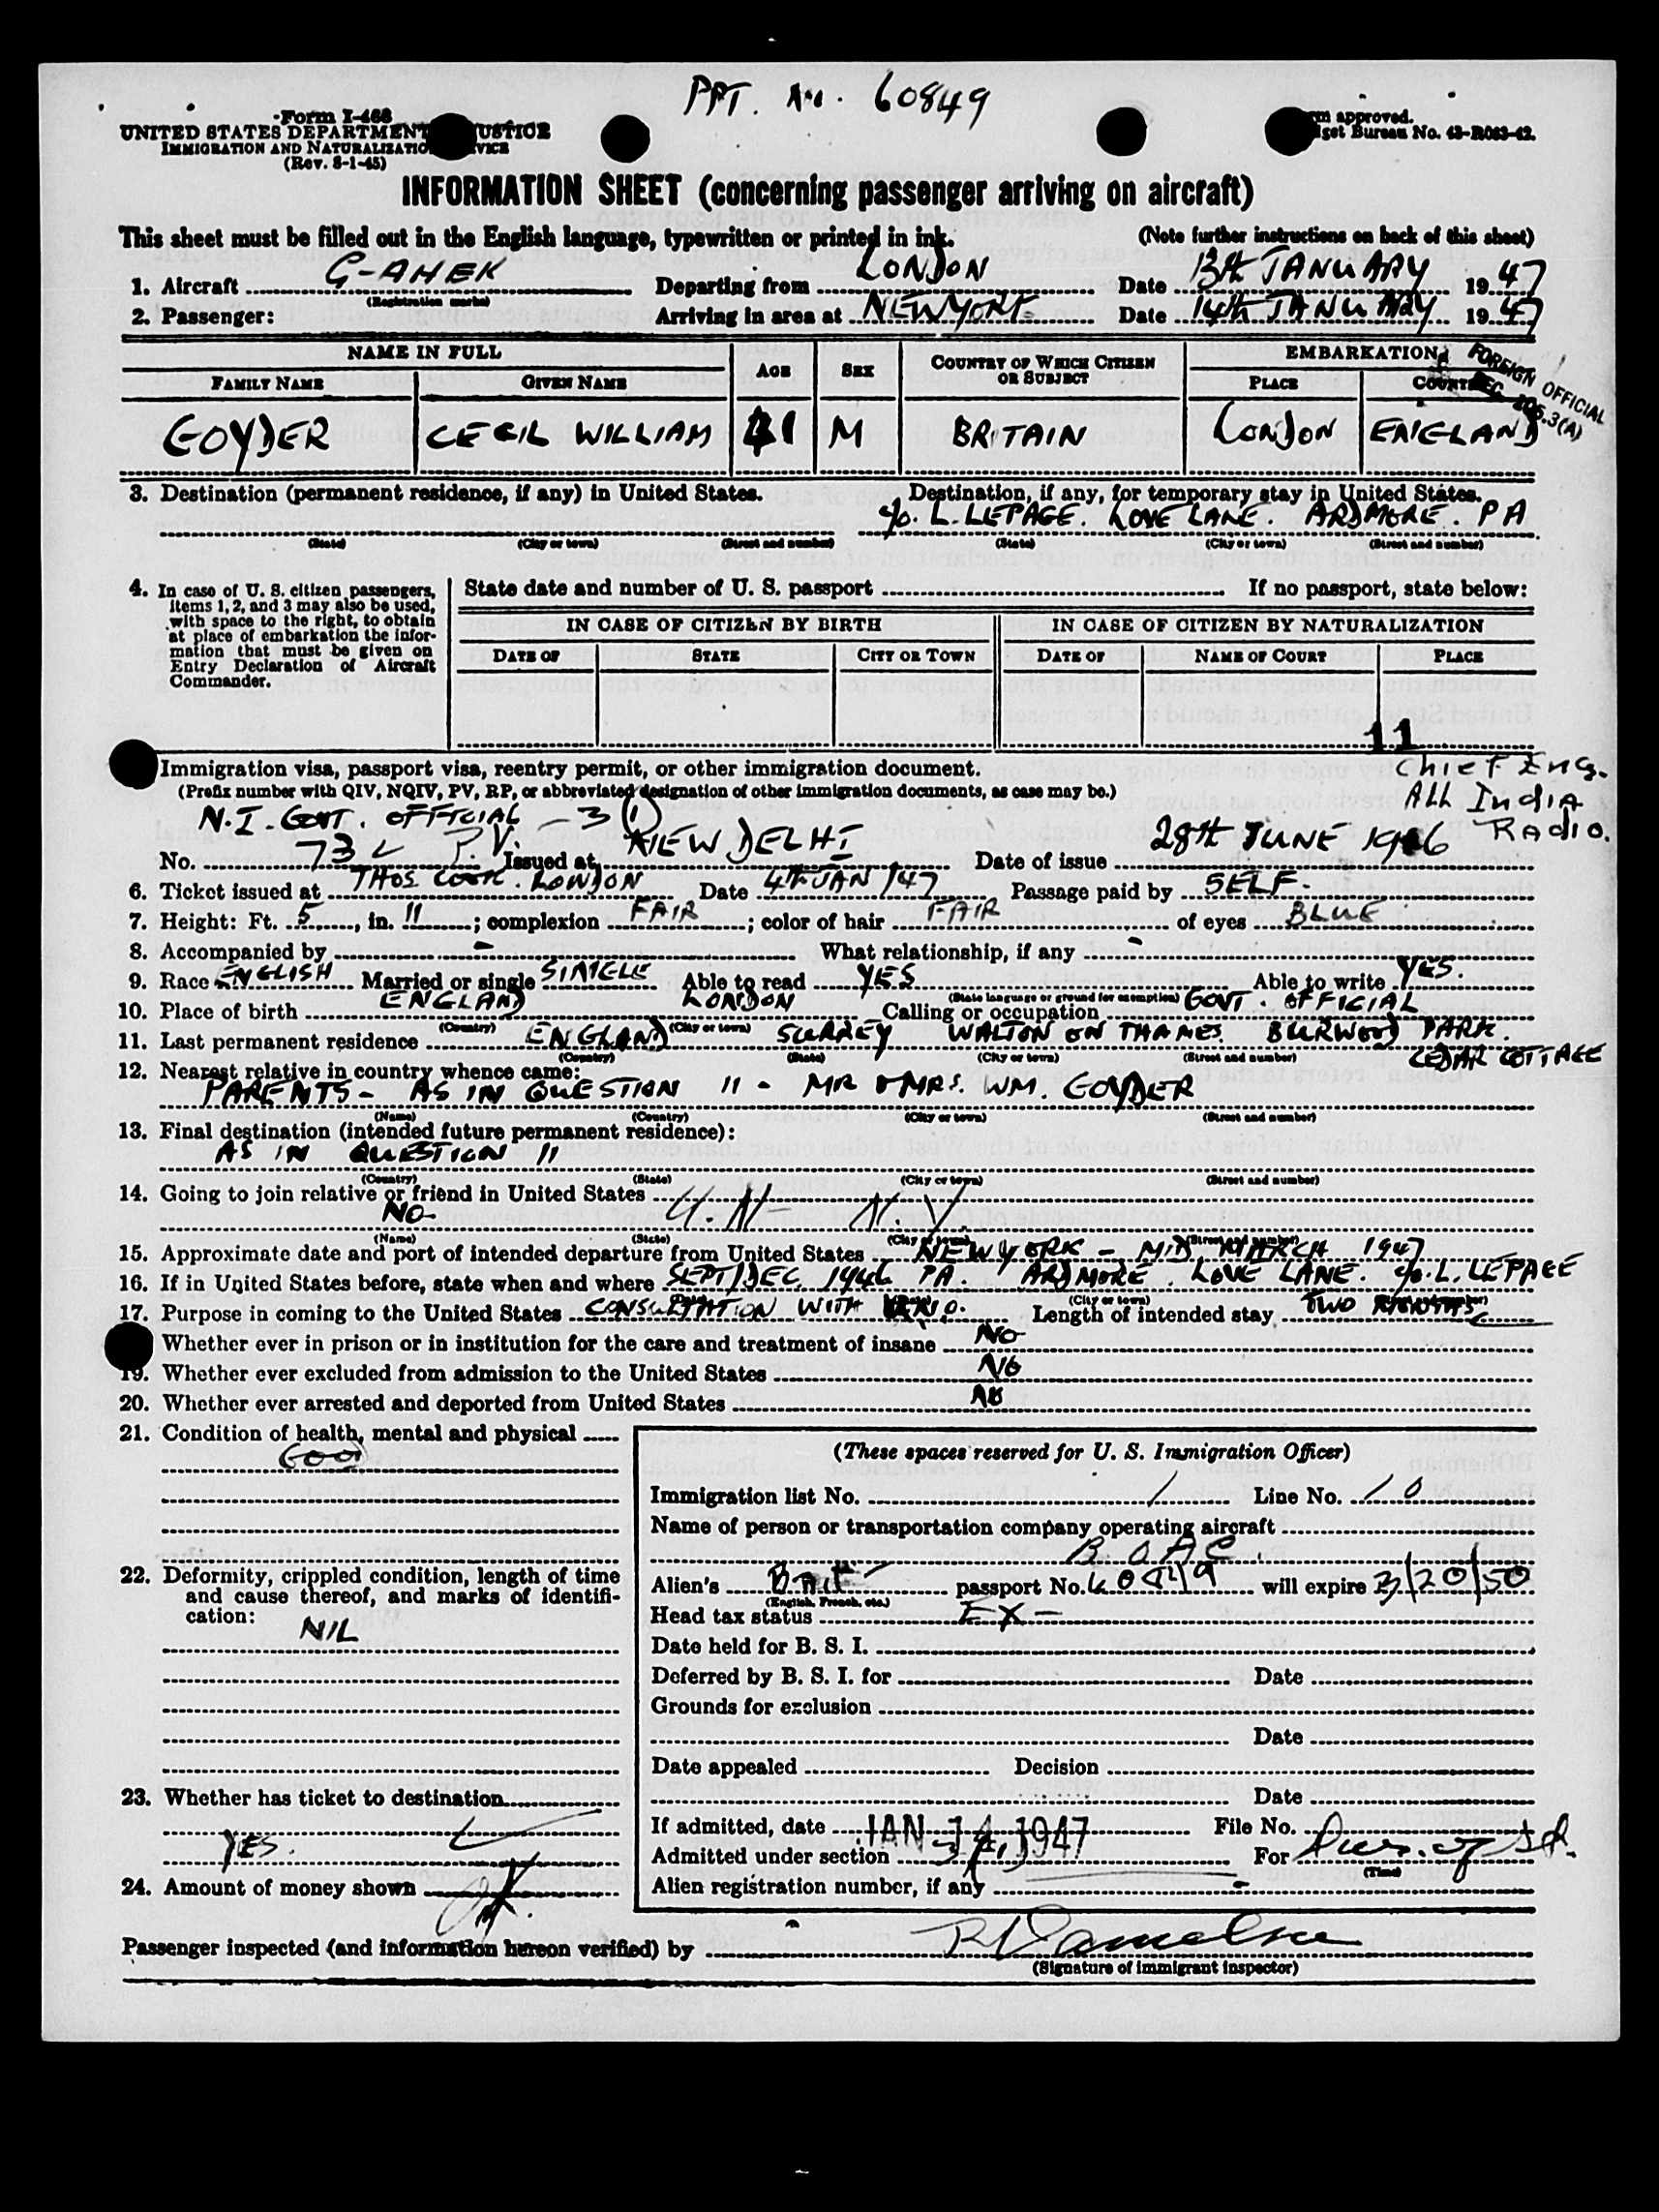 PPT. No. 60849
Form I-466
UNITED STATES DEPARTMENT JUSTICE
IMMIGRATION AND NATURALIZATION SERVICE
(Rev. 8-1-45)
Form approved.
Budget Bureau No. 43-R083-42.
INFORMATION SHEET (concerning passenger arriving on aircraft)
This sheet must be filled out in the English language, typewritten or printed in ink. (Note further instructions on back of this sheet)
1. Aircraft G-AHEK Departing from LONDON Date 13th JANUARY 1947
(Registration marks)
2. Passenger: Arriving in area at NEW YORK Date 14th JANUARY 1947
NAME IN FULL AGE SEX COUNTRY OF WHICH CITIZEN OR SUBJECT EMBARKATION
FAMILY NAME GIVEN NAME PLACE COUNTRY
FOREIGN OFFICIAL
SEC. 205.3(A)
GOYDER CECIL WILLIAM 41 M BRITAIN LONDON ENGLAND
3. Destination (permanent residence, if any) in United States. Destination, if any, for temporary stay in United States.
c/o. L. LEPAGE. LOVE LANE. ARDMORE. PA
(State) (City or town) (Street and number) (State) (City or town) (Street and number)
4. In case of U. S. citizen passengers, items 1, 2, and 3 may also be used, with space to the right, to obtain at place of embarkation the information that must be given on Entry Declaration of Aircraft Commander.
State date and number of U. S. passport If no passport, state below:
IN CASE OF CITIZEN BY BIRTH IN CASE OF CITIZEN BY NATURALIZATION
DATE OF STATE CITY OR TOWN DATE OF NAME OF COURT PLACE
11
Immigration visa, passport visa, reentry permit, or other immigration document.
(Prefix number with QIV, NQIV, PV, RP, or abbreviated designation of other immigration documents, as case may be.)
Chief Eng.
All India
Radio.
N.I. GOVT. OFFICIAL - 3 (1)
No. 73 P.V. Issued at NEW DELHI Date of issue 28th JUNE 1946
6. Ticket issued at THOS COOK. LONDON Date 4th JAN /47 Passage paid by SELF.
7. Height: Ft. 5, in. 11; complexion FAIR; color of hair FAIR of eyes BLUE
8. Accompanied by - What relationship, if any -
9. Race ENGLISH Married or single SINGLE Able to read YES Able to write YES.
(State language or ground for exemption)
10. Place of birth ENGLAND LONDON Calling or occupation GOVT. OFFICIAL
(Country) (City or town)
11. Last permanent residence ENGLAND SURREY WALTON ON THAMES. BURWOOD PARK.
(Country) (State) (City or town) (Street and number) CEDAR COTTAGE
12. Nearest relative in country whence came:
PARENTS - AS IN QUESTION 11 - MR & MRS. WM. GOYDER
(Name) (Country) (City or town) (Street and number)
13. Final destination (intended future permanent residence):
AS IN QUESTION 11
(Country) (State) (City or town) (Street and number)
14. Going to join relative or friend in United States U.N. N.Y.
NO-
(Name) (State) (City or town) (Street and number)
15. Approximate date and port of intended departure from United States NEW YORK - MID MARCH 1947
16. If in United States before, state when and where SEPT/DEC. 1946 PA. ARDMORE. LOVE LANE. c/o. L. LEPAGE
(Date) (City or town) (Street and number)
17. Purpose in coming to the United States CONSULTATION WITH Length of intended stay TWO MONTHS
Whether ever in prison or in institution for the care and treatment of insane NO
19. Whether ever excluded from admission to the United States NO
20. Whether ever arrested and deported from United States NO
21. Condition of health, mental and physical
GOOD
22. Deformity, crippled condition, length of time and cause thereof, and marks of identification:
NIL
23. Whether has ticket to destination
YES.
24. Amount of money shown
(These spaces reserved for U. S. Immigration Officer)
Immigration list No. 1 Line No. 10
Name of person or transportation company operating aircraft
B.O.A.C.
Alien's Brit passport No. 60849 will expire 3/20/50
(English, French, etc.)
Head tax status EX-
Date held for B. S. I.
Deferred by B. S. I. for Date
Grounds for exclusion
Date
Date appealed Decision
Date
If admitted, date JAN 14 1947 File No.
Admitted under section 3(1) For Dur. of st.
(Time)
Alien registration number, if any -
Passenger inspected (and information hereon verified) by
(Signature of immigrant inspector)